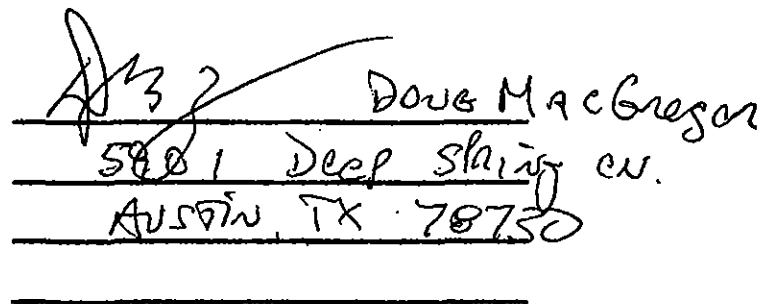 Doug MacGregor
Deep Spring CV.
AUSTIN, TX 78750